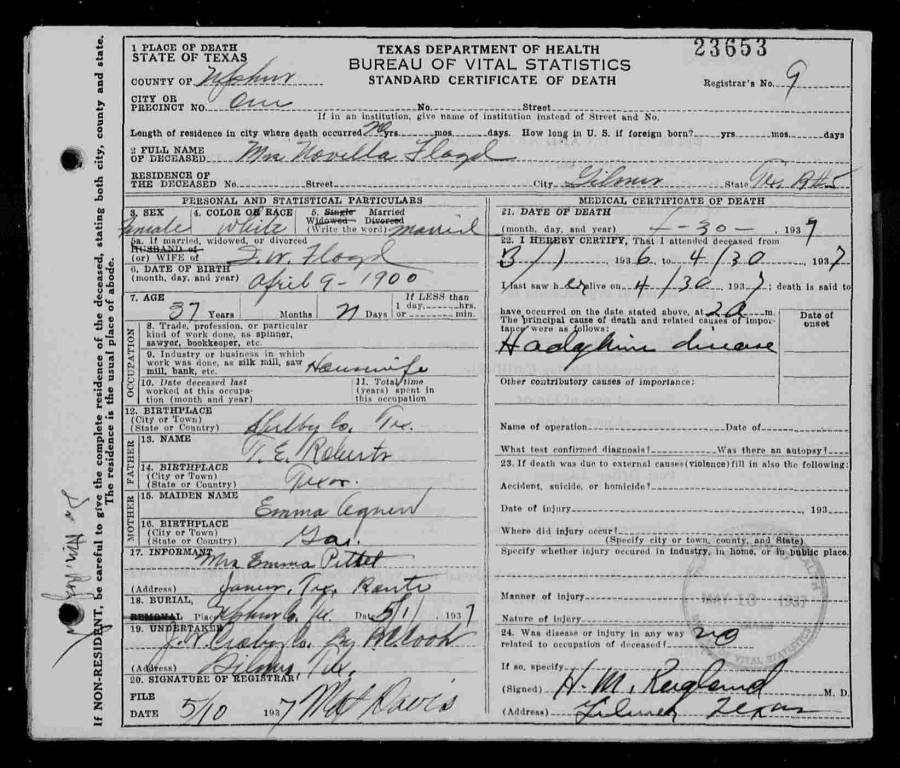 1 PLACE OF DEATH
STATE OF TEXAS
TEXAS DEPARTMENT OF HEALTH
BUREAU OF VITAL STATISTICS
STANDARD CERTIFICATE OF DEATH
23653
COUNTY OF Upshur
Registrar's No. 9
CITY OR
PRECINCT NO. One No. Street
If in an institution, give name of institution instead of Street and No.
Length of residence in city where death occurred yrs. mos. days. How long in U. S. if foreign born? yrs. mos. days
2 FULL NAME
OF DECEASED Mrs Novella Floyd
RESIDENCE OF
THE DECEASED No. Street City Gilmer State Tex Rt 5
PERSONAL AND STATISTICAL PARTICULARS
3. SEX female 4. COLOR OR RACE White 5. Single Married Widowed Divorced (Write the word) married
5a. If married, widowed, or divorced
HUSBAND of
(or) WIFE of F.W. Floyd
6. DATE OF BIRTH
(month, day, and year) April 9 - 1900
7. AGE 37 Years Months 21 Days If LESS than 1 day, hrs. or min.
OCCUPATION
8. Trade, profession, or particular
kind of work done, as spinner,
sawyer, bookkeeper, etc.
9. Industry or business in which
work was done, as silk mill, saw
mill, bank, etc. Housewife
10. Date deceased last
worked at this occupa-
tion (month and year)
11. Total time
(years) spent in
this occupation
12. BIRTHPLACE
(City or Town)
(State or Country) Shelby Co. Tex.
FATHER
13. NAME T. E. Roberts
14. BIRTHPLACE
(City or Town)
(State or Country) Texas.
MOTHER
15. MAIDEN NAME Emma Agnew
16. BIRTHPLACE
(City or Town)
(State or Country) Ga.
17. INFORMANT Mrs Emma Pittet
(Address) Tex. Route
18. BURIAL,
REMOVAL Place Upshur Co. Tex. Date 5/1/ 1937
19. UNDERTAKER J. T. Crosby Co. By Cook
(Address) Gilmer, Tex.
20. SIGNATURE OF REGISTRAR
FILE
DATE 5/10 1937 Davis
MEDICAL CERTIFICATE OF DEATH
21. DATE OF DEATH
(month, day, and year) 4-30-, 1937
22. I HEREBY CERTIFY, That I attended deceased from
3/1, 1936 to 4/30, 1937
I last saw her alive on 4/30, 1937; death is said to
have occurred on the date stated above, at 2a m.
The principal cause of death and related causes of impor-
tance were as follows:
Date of
onset
Hodgkins disease
Other contributory causes of importance:
Name of operation Date of
What test confirmed diagnosis? Was there an autopsy?
23. If death was due to external causes (violence) fill in also the following:
Accident, suicide, or homicide?
Date of injury , 193
Where did injury occur?
(Specify city or town, county, and State)
Specify whether injury occured in industry, in home, or in public place.
Manner of injury
Nature of injury
24. Was disease or injury in any way
related to occupation of deceased? no
If so, specify
(Signed) H. M. Ragland M. D.
(Address) Gilmer Texas
MAY 13 1937
VITAL STATISTICS
If NON-RESIDENT, Be careful to give the complete residence of the deceased, stating both city, county and state.
The residence is the usual place of abode.